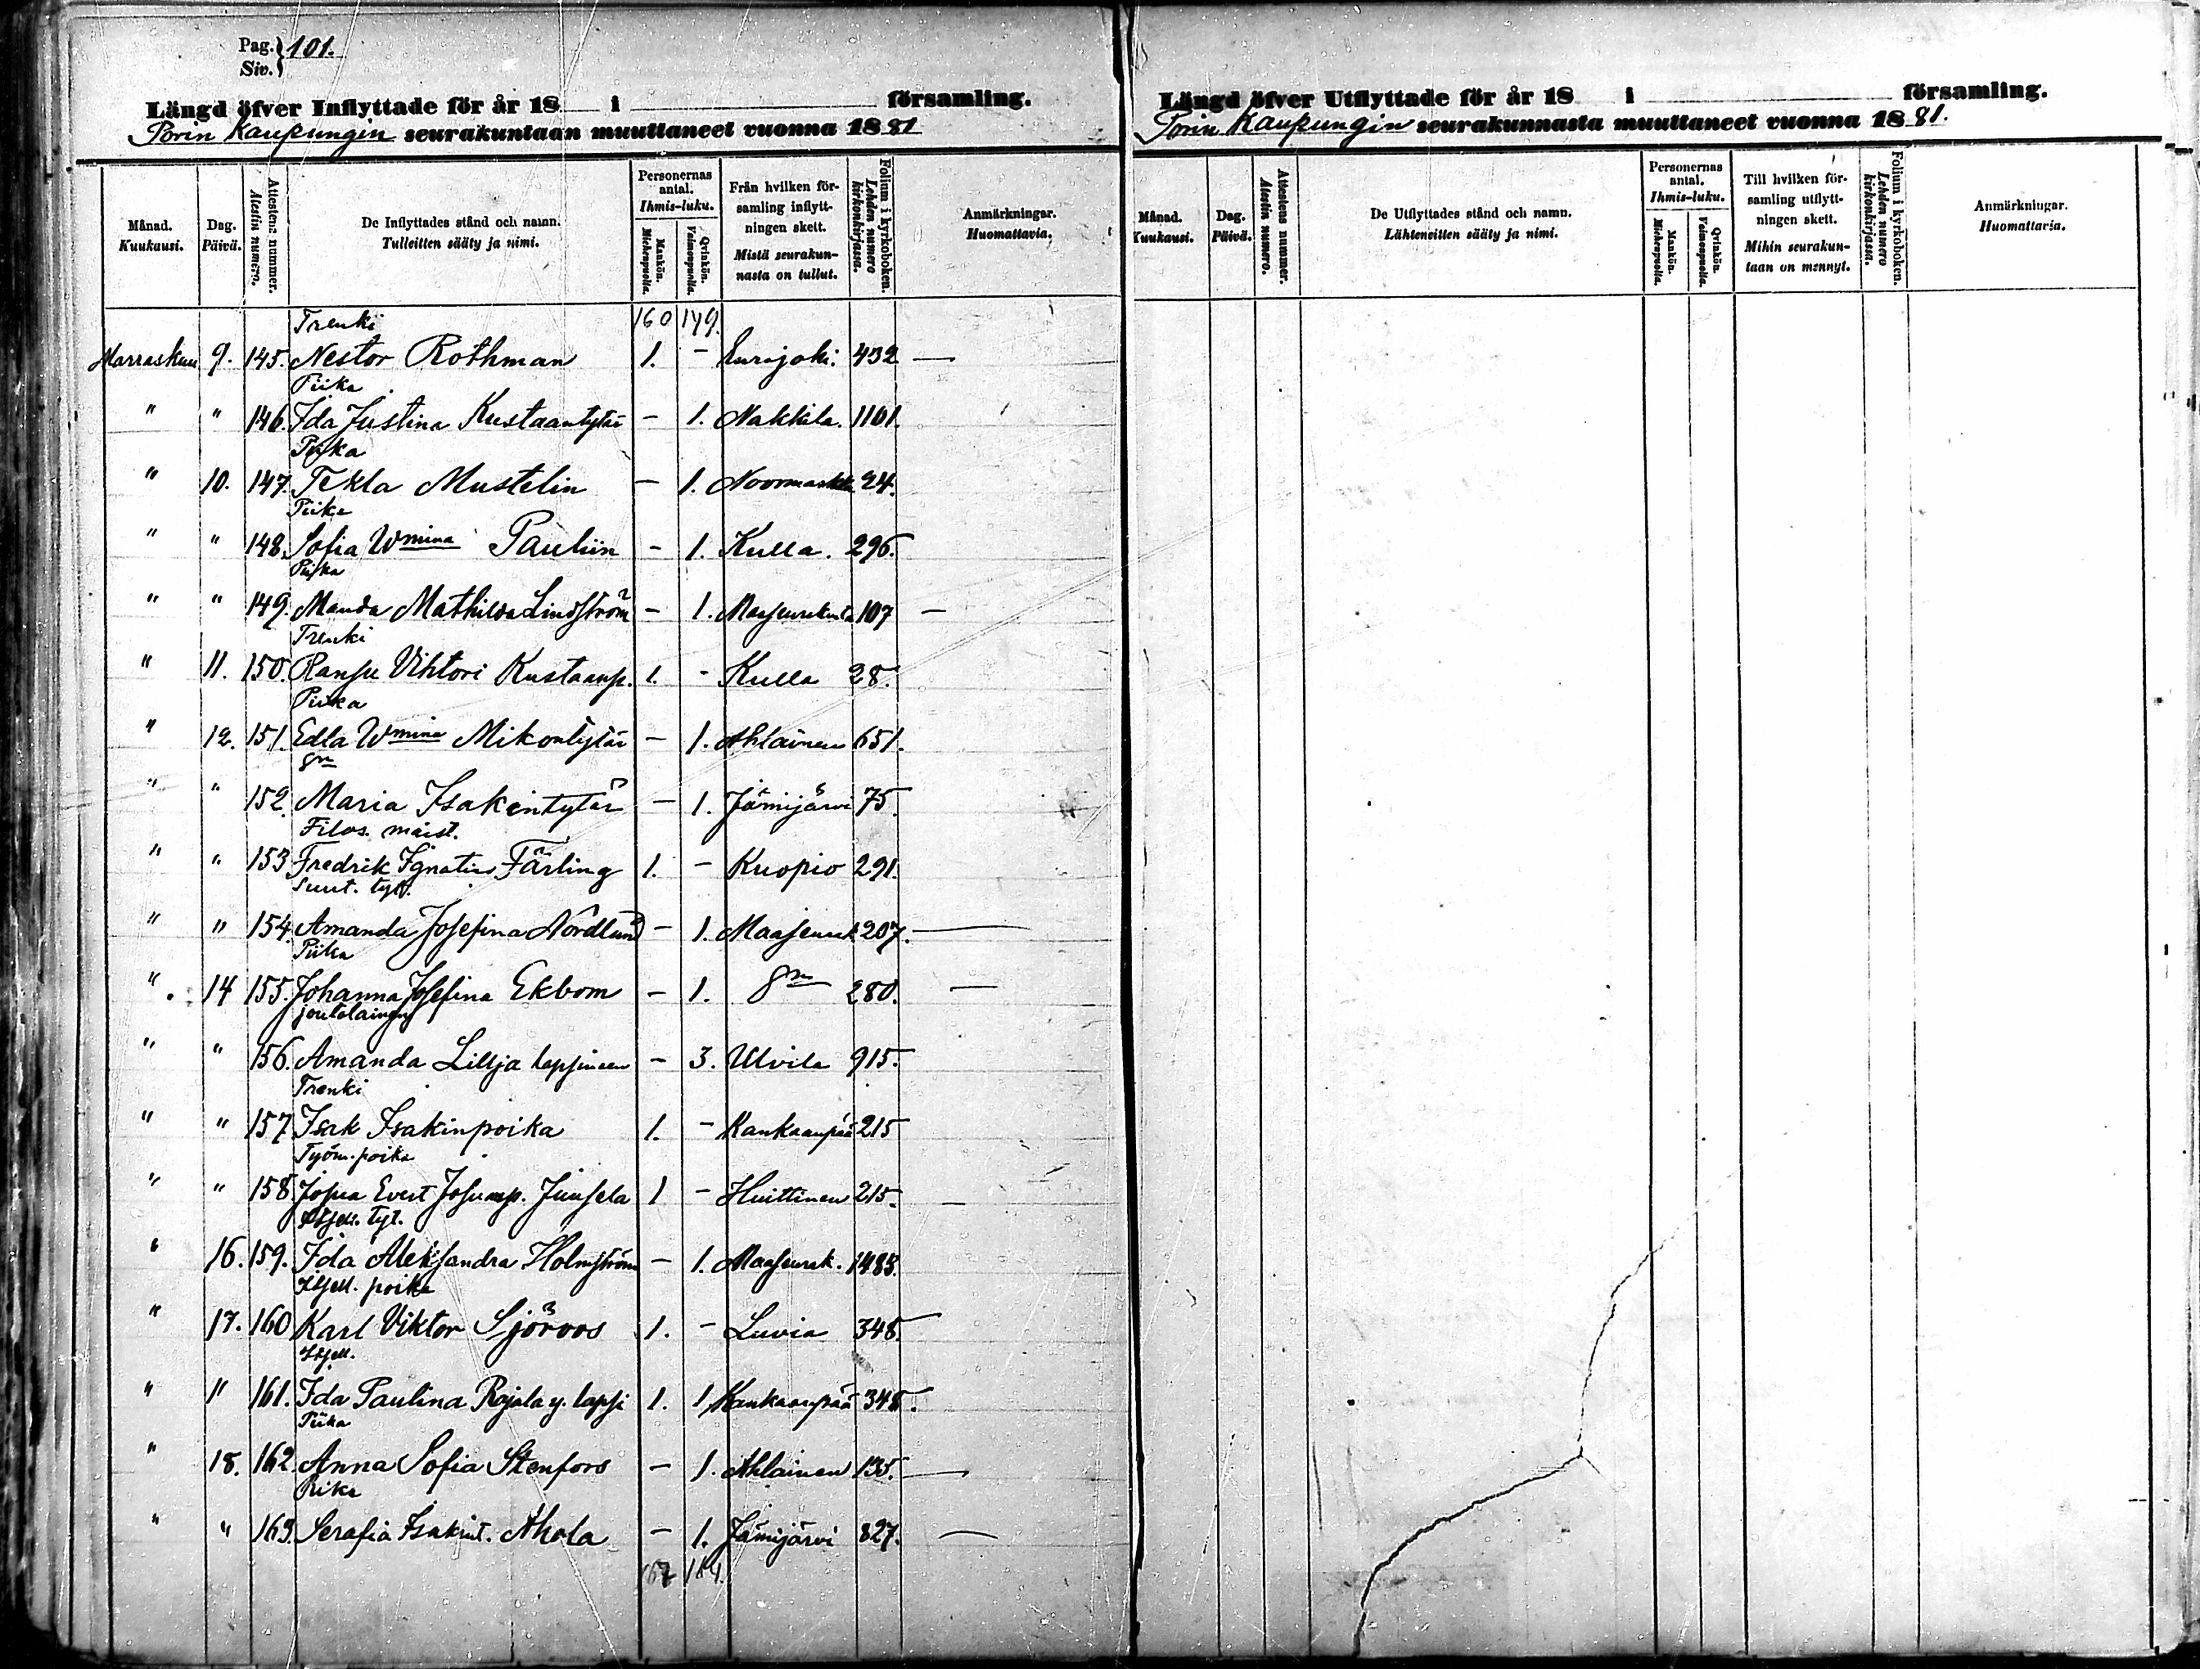 Pag. 101.
Siv.
Längd öfver Inflyttade för år 18 i församling.
Porin Kaupungin seurakuntaan muuttaneet vuonna 1881
Månad. Kuukausi.
Dag. Päivä.
Attestens nummer. Atestin numero.
De Inflyttades stånd och namn.
Tulleitten sääty ja nimi.
Personernas antal. Ihmis-luku.
Mankön. Miehenpuolia.
Qvinkön. Vaimonpuolia.
Från hvilken församling inflyttningen skett.
Mistä seurakunnasta on tullut.
Folium i kyrkoboken. Lehden numero kirkonkirjassa.
Anmärkningar. Huomattavia.
Trenki 160 149.
Marraskuu 9. 145. Nestor Rothman 1. - Eurajoki. 432 —
Piika
" " 146. Ida Justina Kustaantytär - 1. Nakkila. 1101.
Piika
" 10. 147. Tekla Mustelin - 1. Noormarkku 24.
Piika
" " 148. Sofia Wmina Pauliin - 1. Kulla. 296.
Piika
" " 149. Manda Mathilda Lindström - 1. Maaseurakunta 107 —
Trenki
" 11. 150. Ransu Vihtori Kustaanp. 1. - Kulla 28.
Piika
" 12. 151. Edla Wmina Mikontytär - 1. Ahlainen 651.
Dn
" " 152. Maria Isakintytär - 1. Jämijärvi 75.
Filos. maist.
" " 153 Fredrik Ignatius Färling 1. - Kuopio 291.
Suut. tyt.
" " 154. Amanda Josefina Nordlund - 1. Maaseurak 207. —
Piika
" 14 155. Johanna Josefina Ekbom - 1. Dn 280. —
joutolainen
" " 156. Amanda Lillja lapsineen - 3. Ulvila 915.
Trenki
" " 157 Isak Isakinpoika 1. - Kankaanpää 215
Työm. poika
" " 158 Josua Evert Josuanp. Juusela 1 - Huittinen 215. —
Itsell. tyt.
" 16. 159. Ida Aleksandra Holmström - 1. Maaseurak. 1483.
Itsell. poika
" 17. 160 Karl Viktor Sjöroos 1. - Luvia 348. —
Itsell.
" " 161. Ida Paulina Rajala y. lapsi 1. 1 Kankaanpää 348.
Piika
" 18. 162. Anna Sofia Stenfors - 1. Ahlainen 135. —
Piika
" " 163. Serafia Isakint. Ahola - 1. Jämijärvi 827. —
167 164.
Längd öfver Utflyttade för år 18 i församling.
Porin Kaupungin seurakunnasta muuttaneet vuonna 1881.
Månad. Kuukausi.
Dag. Päivä.
Attestens nummer. Atestin numero.
De Utflyttades stånd och namn.
Lähteneitten sääty ja nimi.
Personernas antal. Ihmis-luku.
Mankön. Miehenpuolia.
Qvinkön. Vaimonpuolia.
Till hvilken församling utflyttningen skett.
Mihin seurakuntaan on mennyt.
Folium i kyrkoboken. Lehden numero kirkonkirjassa.
Anmärkningar. Huomattavia.